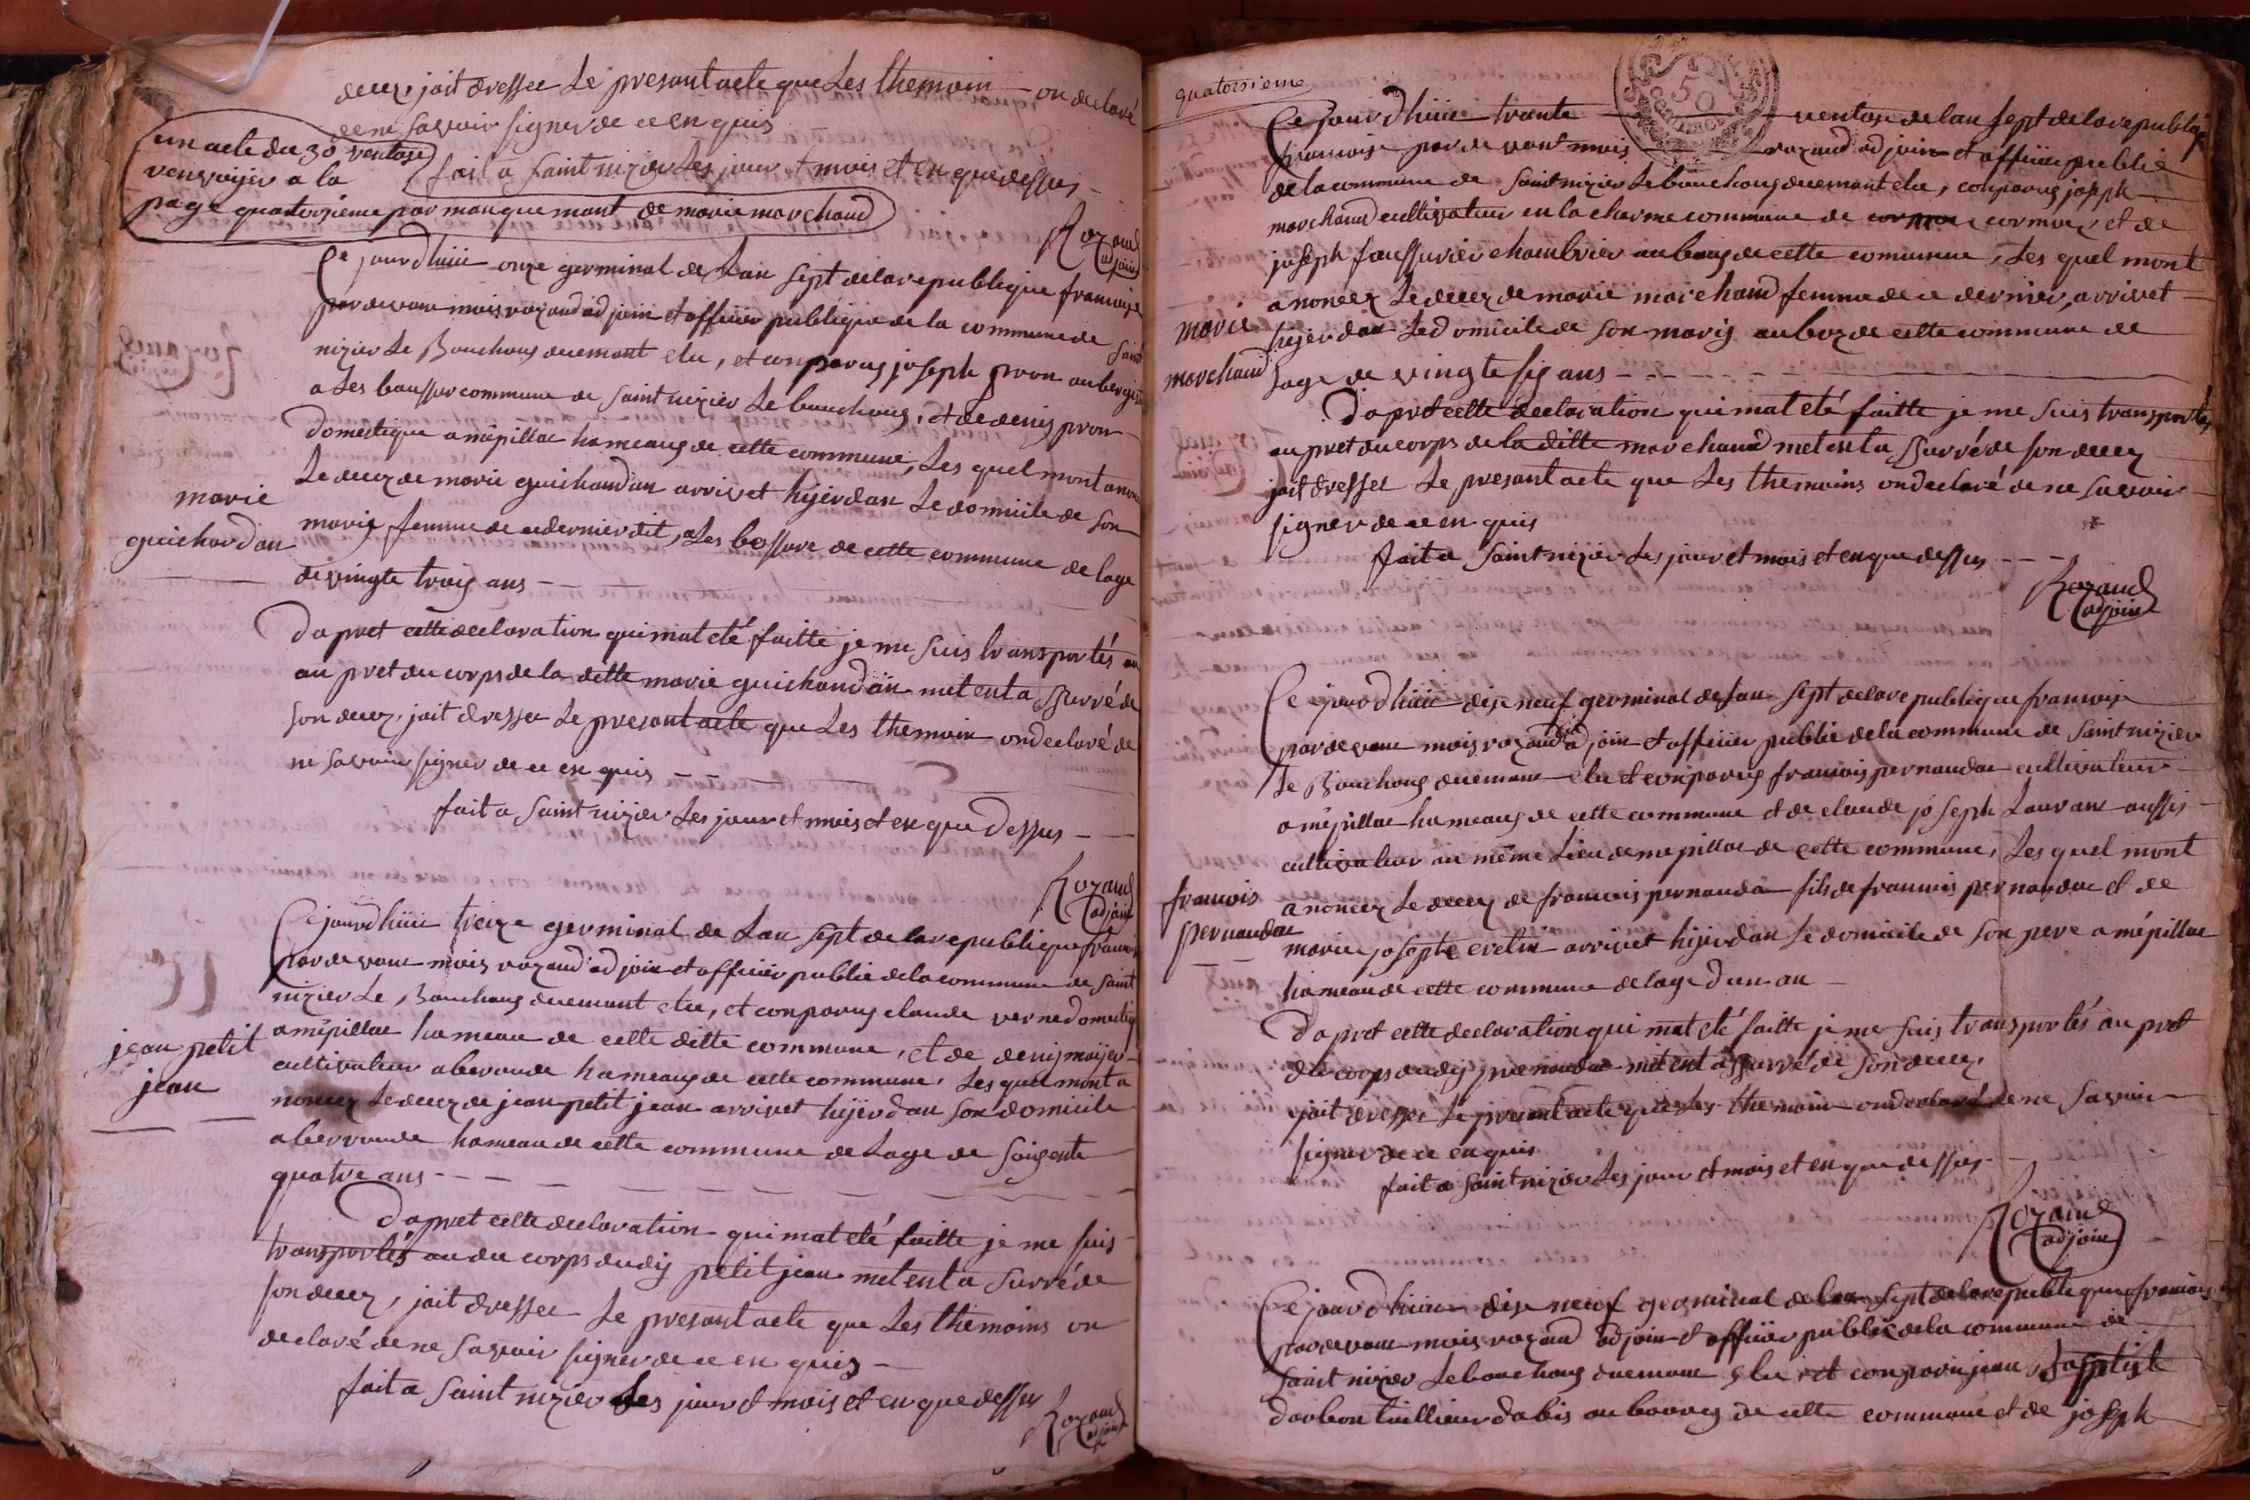 decez, jait dressee Le presant acte que Les themoin on declaré
de ne savoir signer de ce en quis
fait a saint nizier Les jour et mois et en que dessus
un acte du 30 ventose
renvoyér a la
page quatorsieme par manquemant de marie marchand
Rozand
adjoin
Ce jourdhuii onze germinal de Lan sept de la republique francoise
par devant mois rozand adjoin et officiér publique de la commune de saint
nizier Le Bouchoug duemant elu, et conparug joseph pron aubergiste
a Les baussor commune de saint nizier Le bouchoug, et de denis pron
domestique a mépillat hameaug de cette commune, Les quel mont anonce
Le decez de marie guichardan arrivet hyier dan Le domicile de son
marig femme de ce dernier dit, a Les bossore de cette commune de lage
de vingte troig ans
marie
guichardan
Dapret cette declaration qui mat eté faitte je me suis transportés au
au pret du corps de la ditte marie guichardan metent assurré de
son decez, jait dressee Le presant acte que Les themoin on declaré de
ne savoir signer de ce en quis
fait a saint nizier Les jour et mois et en que dessus
Rozand
adjoin
Ce jourdhuii treize germinal de Lan sept de la republique francois
par devant mois rozand adjoin et officiér publie de la commune de saint
nizier Le Bouchoug duemant elu, et conparug claude verne domestiq
a mépillat hameau de cette ditte commune, et de denig moijer
cultivateur a beroude hameaug de cette commune, Les quel mont a
noncez Le decez de jean petit jean arrivet hyier dan son domicile
a berroude hameau de cette commune de Lage de soigente
quatre ans
jean petit
jean
Dapret cette declaration qui mat eté faitte je me suis
transportés au du corps dudig petit jean metent a surré de
son decez, jait dressee Le presant acte que Les themoins on
declaré de ne savoir signer de ce en quis
fait a saint nizier Les jour et mois et en que dessus
Rozand
adjoin
quatorsieme
50
Ce jourdhuii trante ventose de lan sept de la republique
francoise par devant mois rozand adjoin et officiér publie
de la commune de saint nizier Le bouchoug duemant elu, conparug joseph
marchand cultivateur en la charme commune de cormoz, et de
joseph foussurier chambrier au boug de cette commune, Les quel mont
anoncez Le decez de marie marchand femme de ce dernier, arrivet
hyier dan Le domicile de son marig au boz de cette commune de
lage de vingte sig ans
marie
marchand
Dapret cette declaration qui mat eté faitte je me suis transportés
au pret du corps de la ditte marchand metent a surré de son decez
jait dressee Le presant acte que Les themoins on declaré de ne savoir
signer de ce en quis
fait a saint nizier Les jour et mois et en que dessus
Rozand
adjoin
Ce jourdhuii dise neuf germinal de lan sept de la republique francoise
par devant mois rozand adjoin et officiér publie de la commune de saint nizier
Le Bouchoug duemant elu et conparug francois pernaudat cultivateur
a mépillat hameaug de cette commune et de claude joseph Laurant aussis
cultivateur au même Lieu de mepillat de cette commune, Les quel mont
anoncez Le decez de francois pernaudat fils de francois pernaudat et de
marie josepte evelin arrivet hyier dan Le domicile de son pere a mépillat
hameau de cette commune de lage dun an
francois
pernaudat
Dapret cette declaration qui mat eté faitte je me suis transportés au pret
du corps dudig pernaudat metent assurré de son decez,
jait dressee Le presant acte que Les themoin on declaré de ne savoir
signer de ce en quis
fait a saint nizier Les jour et mois et en que dessus
Rozand
adjoin
Ce jourdhuii dise neuf germinal de lan sept de la republique francois
par devant mois rozand adjoin et officiér publie de la commune de
saint nizier Le bouchoug duemant elu et conparu jean Baptiste
darbon taillieur dabis au bourg de cette commune et de joseph